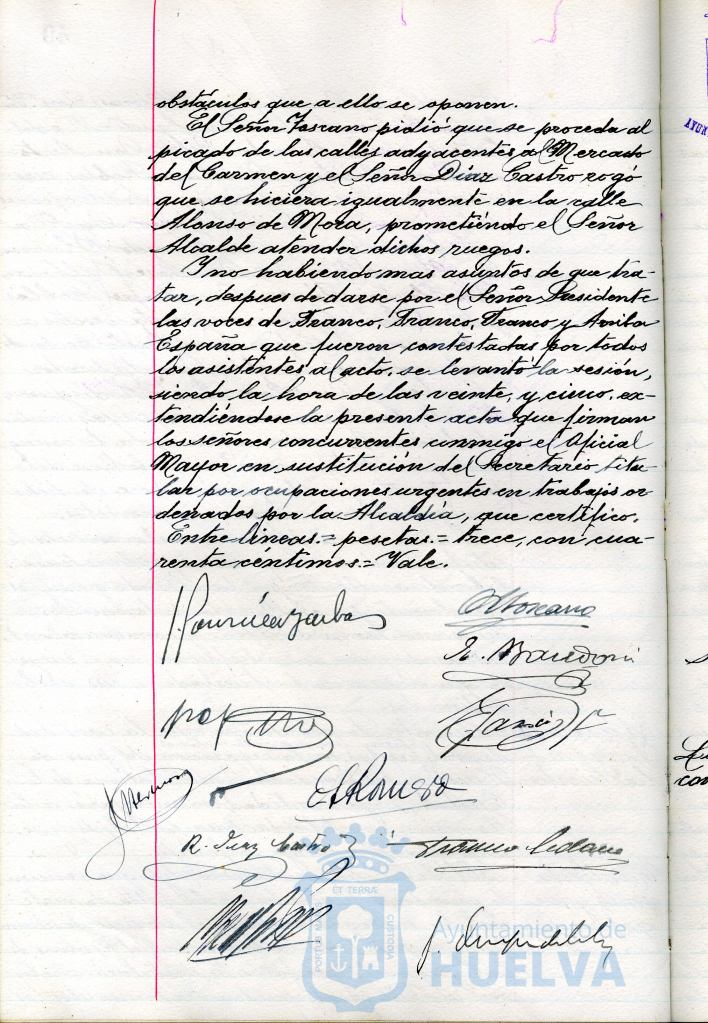 obstáculos que a ello se oponen.
El Señor Toscano pidió que se proceda al
picado de las calles adyacentes al Mercado
del Carmen y el Señor Díaz Castro rogó
que se hiciera igualmente en la calle
Alonso de Mora, prometiéndo el Señor
Alcalde atender dichos ruegos.
Y no habiendo mas asuntos de que tra-
tar, despues de darse por el Señor Presidente
las voces de Franco, Franco, Franco y Arriba
España que fueron contestadas por todos
los asistentes al acto, se levantó la sesión,
siendo la hora de las veinte, y cinco, ex-
tendiéndose la presente acta que firman
los señores concurrentes conmigo el Oficial
Mayor en sustitución del Secretario titu-
lar por ocupaciones urgentes en trabajos or-
denados por la Alcaldía, que certifico.
Entre lineas.= pesetas.= trece, con cua-
renta céntimos.= Vale.
Toscano
Romero
R. Diaz Castro
ET TERRÆ
PORTUS MARIS
CUSTODIA
Ayuntamiento de
HUELVA